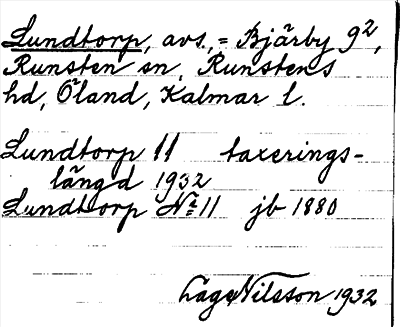 Lundtorp, avs., = Bjärby 9²,
Runsten sn, Runstens
hd, Öland, Kalmar l.
Lundtorp 11 taxerings-
längd 1932
Lundtorp № 11 jb 1880
Låge Nilsson 1932